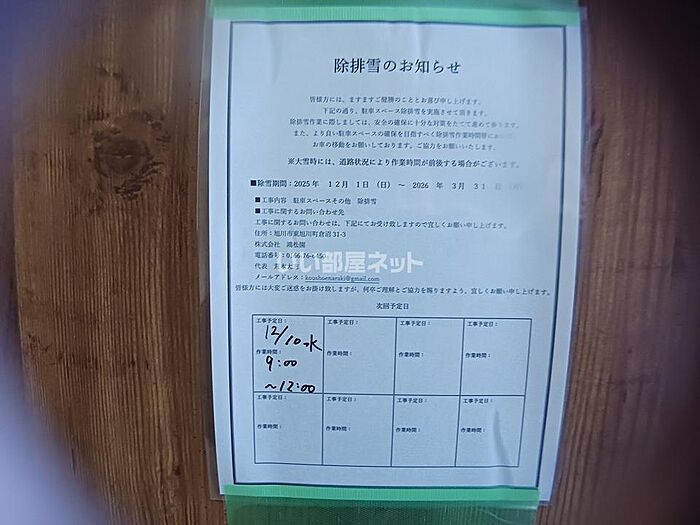 除排雪のお知らせ
皆様方には、ますますご健勝のこととお喜び申し上げます。
下記の通り、駐車スペース除排雪を実施させて頂きます。
除排雪作業に際しましては、安全の確保に十分な対策をたてて進めて参ります。
また、より良い駐車スペースの確保を目指すべく除排雪作業時間帯に
お車の移動をお願いしております。ご協力をお願いいたします。
※大雪時には、道路状況により作業時間が前後する場合がございます。
■除雪期間：2025年 12月 1日（日）～ 2026年 3月 31日
■工事内容 駐車スペースその他 除排雪
■工事に関するお問い合わせ先
工事に関するお問い合わせは、下記にてお受け致しますので宜しくお願い申し上げます。
住所：旭川市東旭川町倉沼 31-3
株式会社 鴻松園
電話番号：0166-76-6450
代表 荒木大
メールアドレス：koushoenaraki@gmail.com
皆様方には大変ご迷惑をお掛け致しますが、何卒ご理解とご協力を賜りますよう、宜しくお願い申し上げます。
いい部屋ネット
次回予定日
工事予定日： 工事予定日： 工事予定日： 工事予定日：
12/10 水
作業時間： 作業時間： 作業時間： 作業時間：
9:00
～12:00
工事予定日： 工事予定日： 工事予定日： 工事予定日：
作業時間： 作業時間： 作業時間： 作業時間：